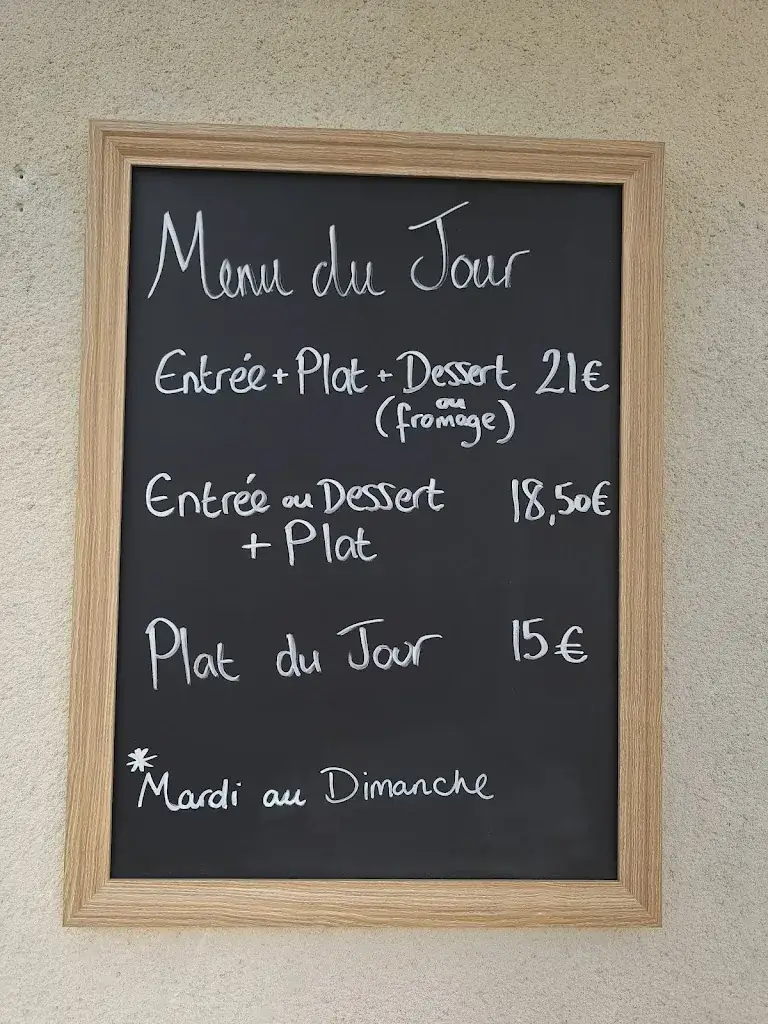 Menu du Jour
Entrée + Plat + Dessert 21€
ou
(fromage)
Entrée ou Dessert 18,50€
+ Plat
Plat du Jour 15€
*Mardi au Dimanche